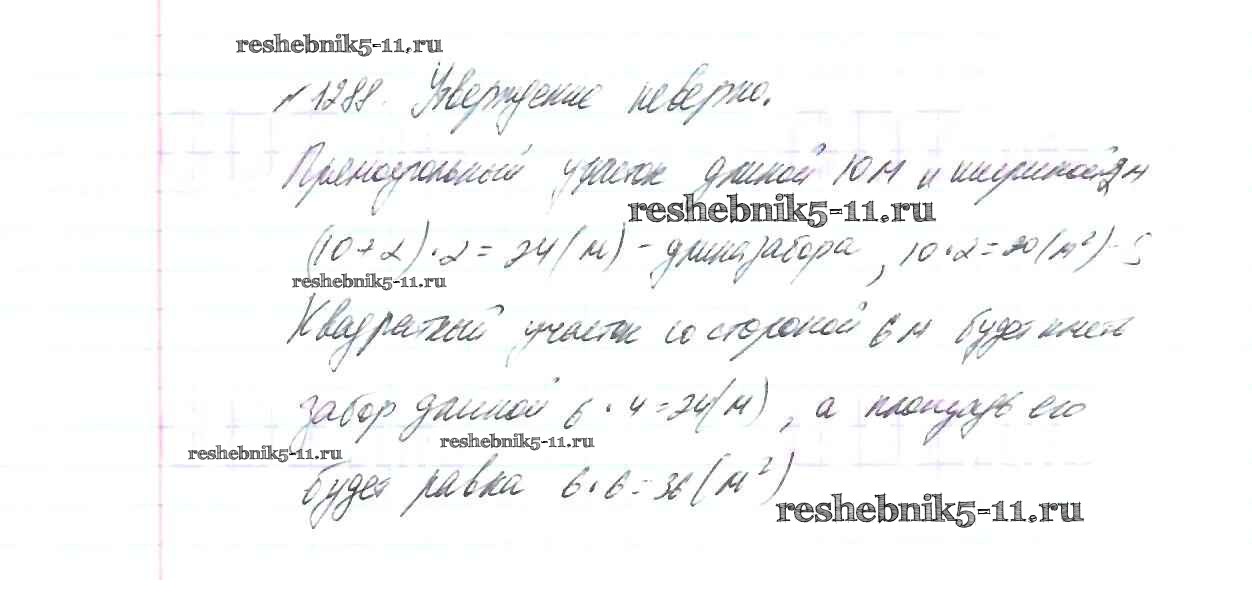 reshebnik5-11.ru
№1288. Утверждение неверно.
Прямоугольный участок длиной 10 м и шириной 2 м
reshebnik5-11.ru
(10+2)·2=24(м) - длина забора, 10·2=20(м²)-S
reshebnik5-11.ru
Квадратный участок со стороной 6 м будет иметь
забор длиной 6·4=24(м), а площадь его
reshebnik5-11.ru
reshebnik5-11.ru
будет равна 6·6=36(м²)
reshebnik5-11.ru